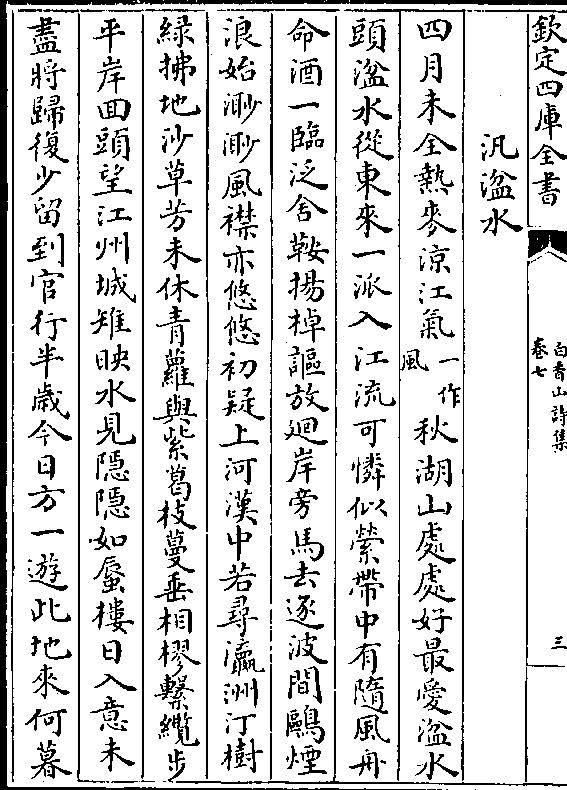 欽定四庫全書
白香山詩集
卷七
三
汎湓水
四月未全熱麥凉江氣一作風秋湖山處處好最愛湓水
頭湓水從東來一派入江流可憐似縈帶中有隨風舟
命酒一臨泛舍鞍揚棹謳放廻岸旁馬去逐波間鷗煙
浪始渺渺風襟亦悠悠初疑上河漢中若尋瀛洲汀樹
緑拂地沙草芳未休青蘿與紫葛枝蔓垂相樛繫纜步
平岸回頭望江州城雉映水見隠隠如蜃樓日入意未
盡將歸復少留到官行半歲今日方一遊此地來何暮